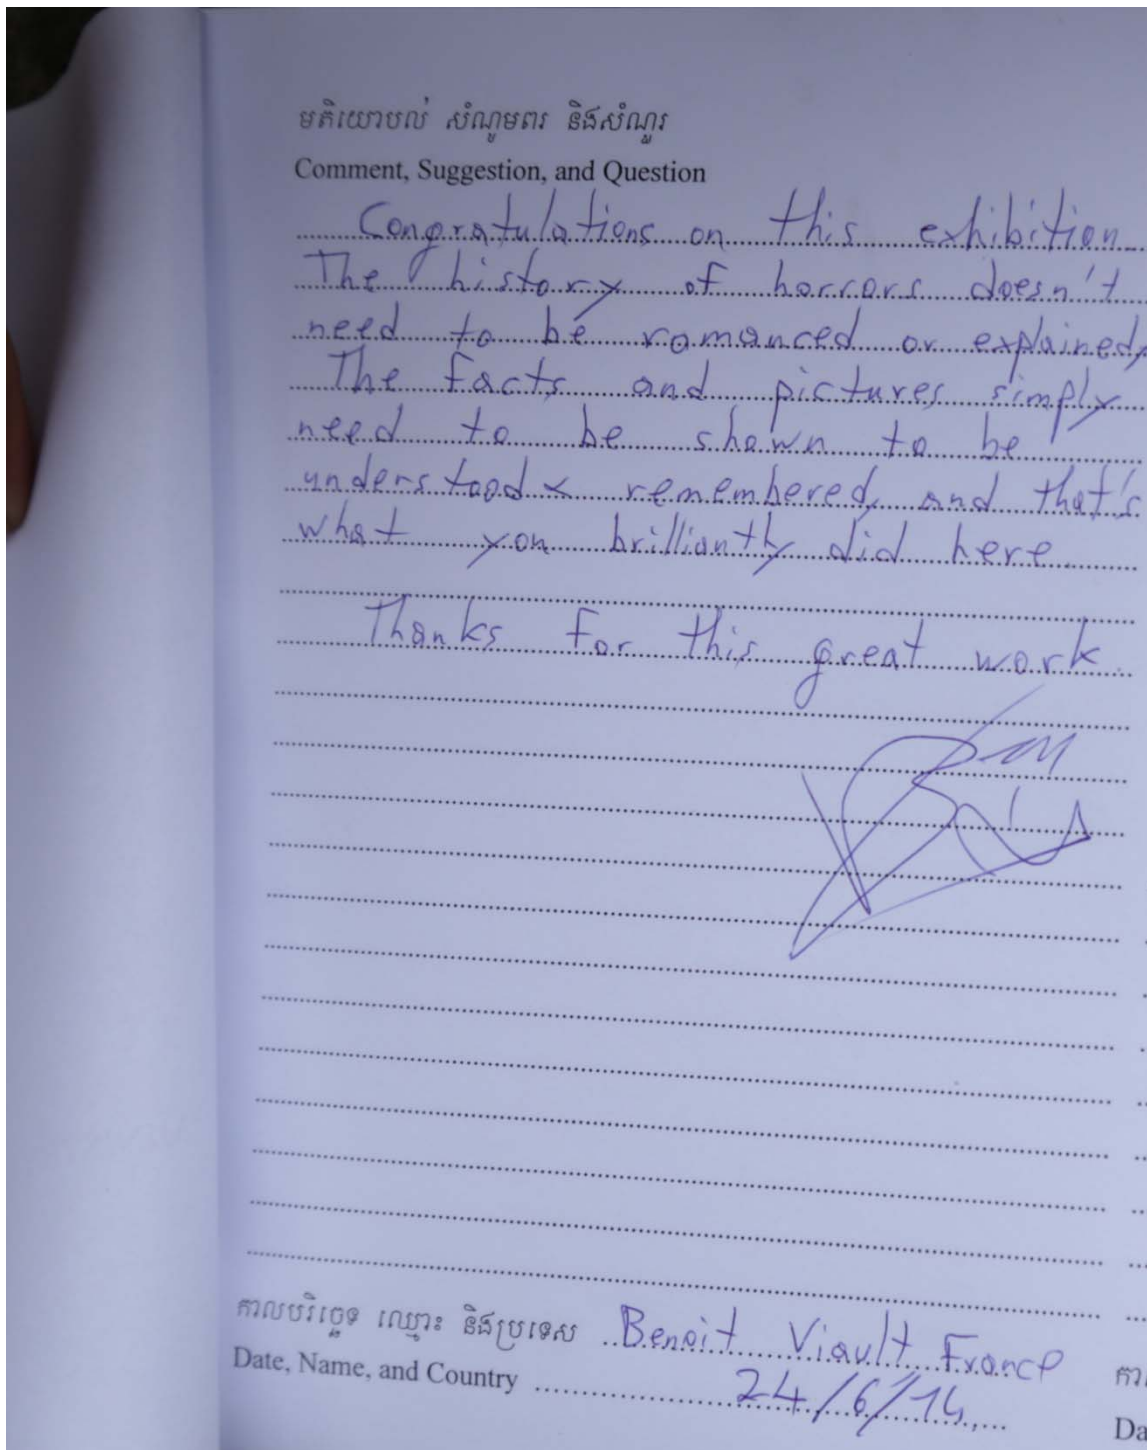 មតិយោបល់ សំណូមពរ និងសំណួរ
Comment, Suggestion, and Question
Congratulations on this exhibition
The history of horrors doesn't
need to be romanced or explained,
The facts and pictures simply
need to be shown to be
understood & remembered, and that's
what you brilliantly did here.
Thanks for this great work.
កាលបរិច្ឆេទ ឈ្មោះ និងប្រទេស Benoit Viault France
Date, Name, and Country 24/6/14